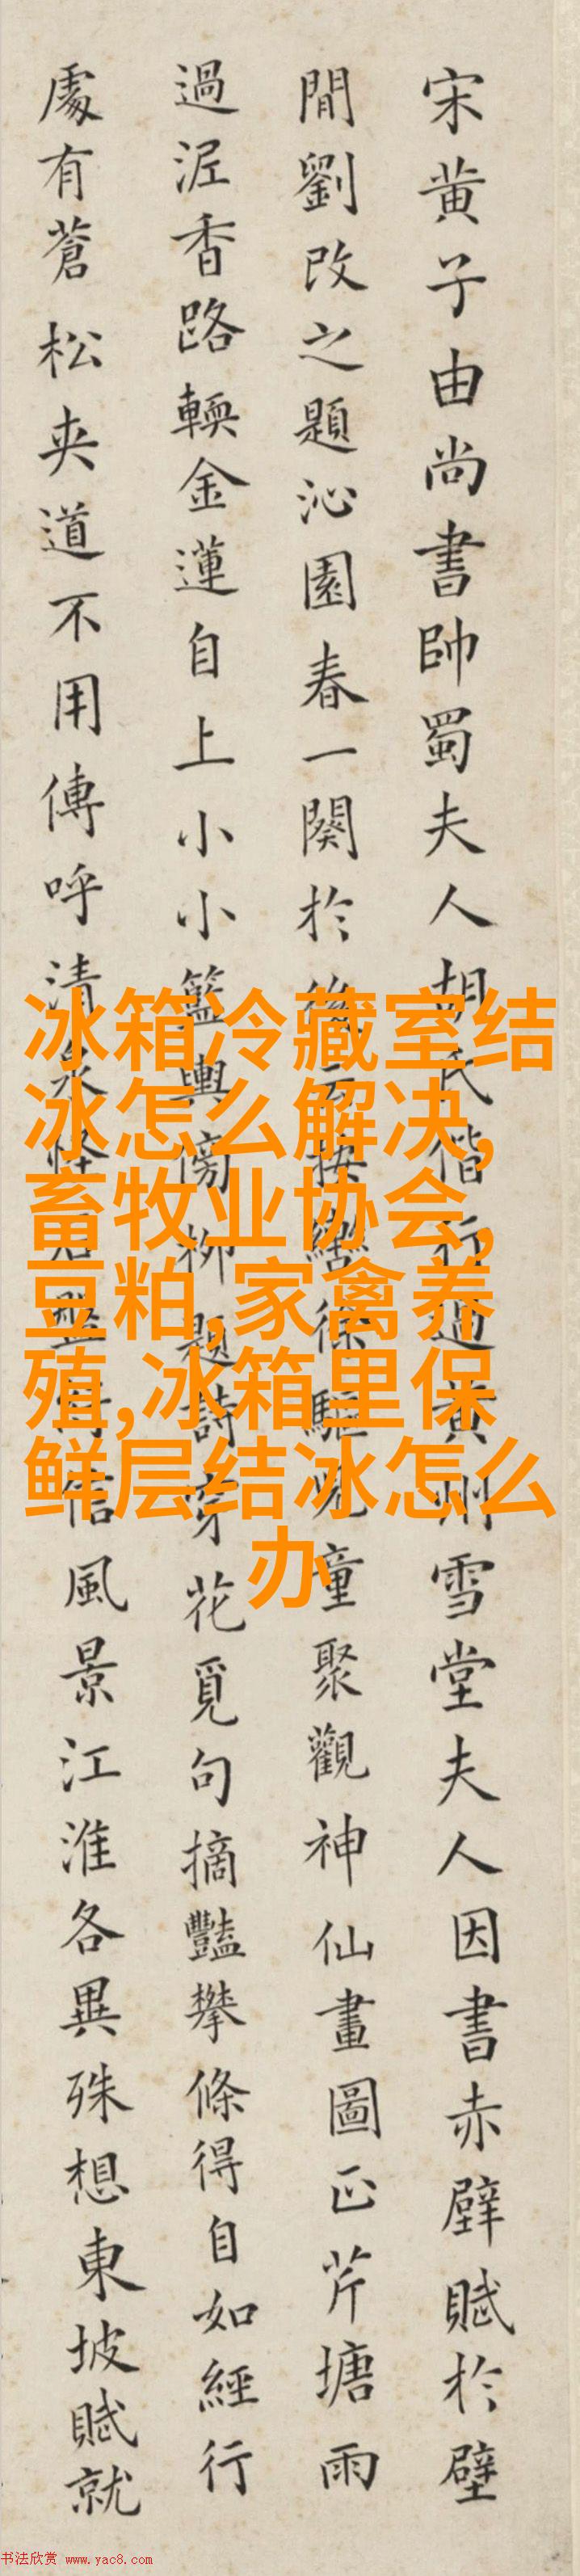 宋黄子由尚書帥蜀夫人胡氏偕行過黄州雪堂夫人因書赤壁賦於壁
間劉改之題沁園春一闋於後云按轡徐驅兒童聚觀神仙畫圖正芹塘雨
過泥香路輭金蓮自上小小籃輿傍柳題詩穿花覓句摘豔攀條得自如經行
處有蒼松夾道不用傳呼清泉怪石盤信風景江淮各異殊想東坡賦就
冰箱冷藏室结
冰怎么解决,
畜牧业协会,
豆粕,家禽养
殖,冰箱里保
鲜层结冰怎么
办
书法欣赏 www.yac8.com